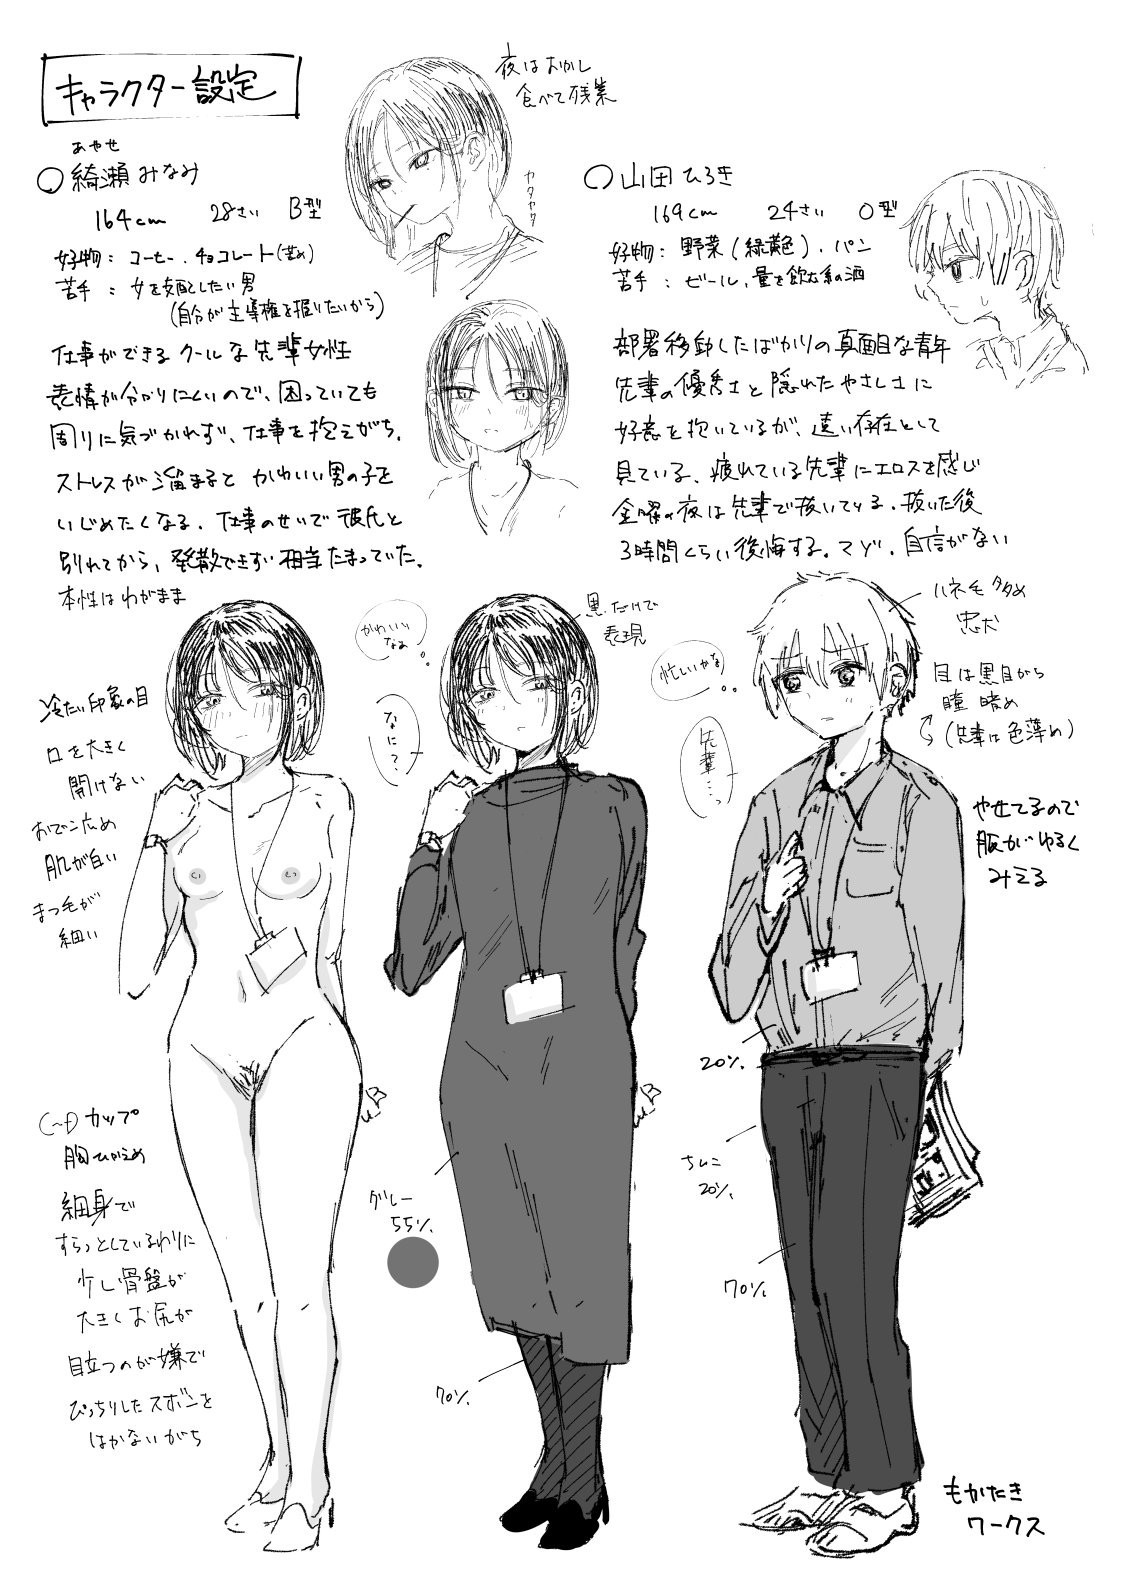 キャラクター設定
夜はおかし
食べて残業
カタカタ
あやせ
○綺瀬みなみ
164cm 28さい B型
好物: コーヒー、チョコレート(苦め)
苦手: 女を支配したい男
(自分が主導権を握りたいから)
仕事ができるクールな先輩女性
表情が分かりにくいので、困っていても
周りに気づかれず、仕事を抱えがち。
ストレスが溜まるとかわいい男の子を
いじめたくなる。仕事のせいで彼氏と
別れてから、発散できずに相当たまっていた。
本性はわがまま
○山田ひろき
169cm 24さい O型
好物: 野菜(緑黄色)、パン
苦手: ビール、量を飲む系の酒
部署移動したばかりの真面目な青年
先輩の優秀さと隠れたやさしさに
好意を抱いているが、遠い存在として
見ている。疲れている先輩にエロスを感じ
金曜の夜は先輩で抜いてる。抜いた後
3時間くらい後悔する。マゾ、自信がない
冷たい印象の目
口を大きく
開けない
おでこ広め
肌が白い
まつ毛が
細い
かわいい
なぁ
なに?
黒だけで
表現
忙しいかな
先輩…っ
ハネ毛タタめ
忠犬
目は黒目がち
瞳暗め
(先輩は色薄め)
やせてるので
服がゆるく
みえる
カップ
胸ひかえめ
細身で
すらっとしているわりに
少し骨盤が
大きくお尻が
目立つのが嫌で
ぴっちりしたズボンを
はかないがち
グレー
55%
70%
20%
ちんこ
20%
70%
もかたき
ワークス